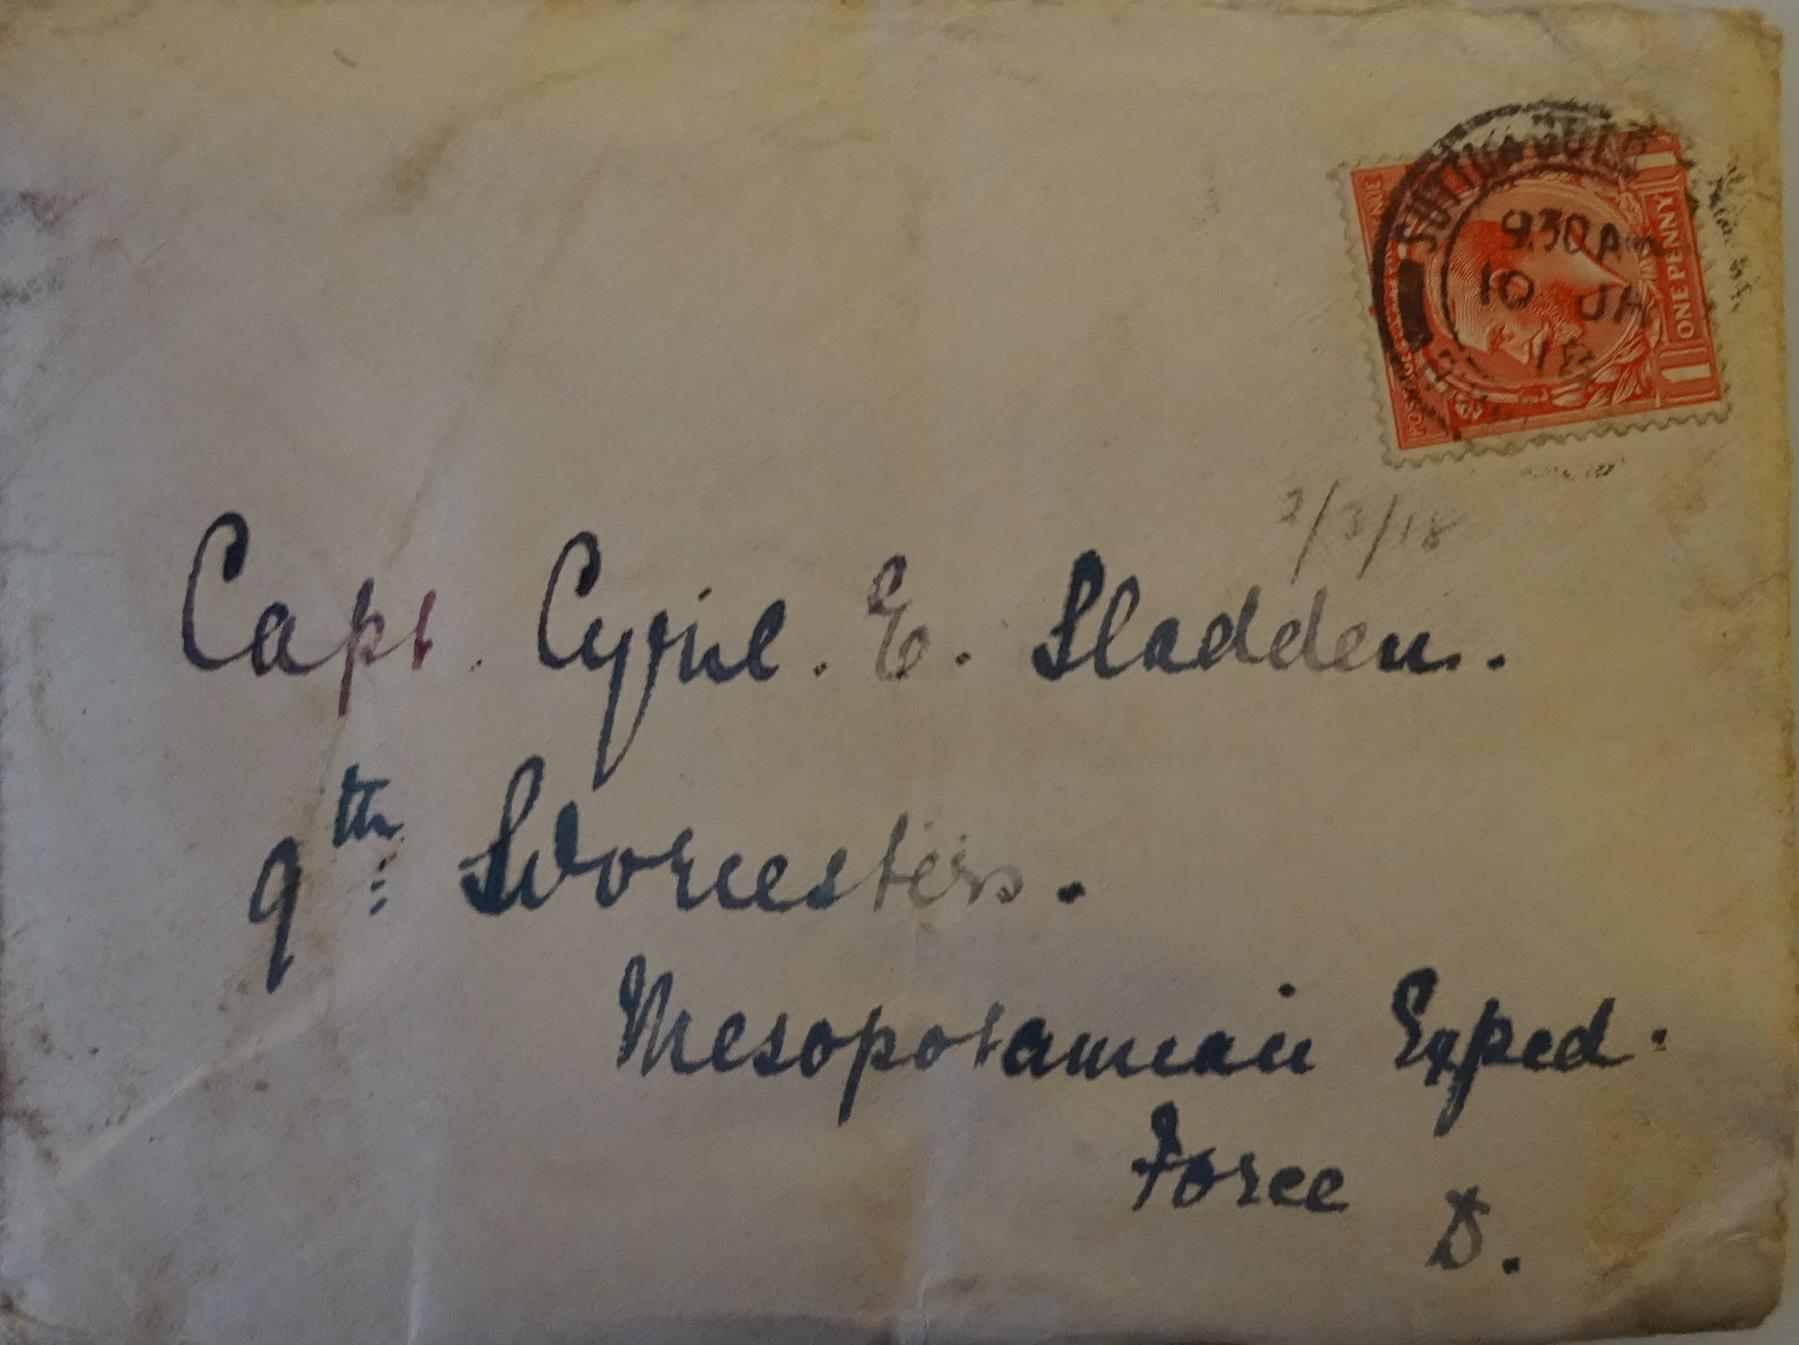 9.30 AM
10 JA
18
ONE PENNY
1
1
2/3/18
Capt. Cyril. E. Sladden.
9th: Worcesters.
Mesopotamian Exped.
Force
D.